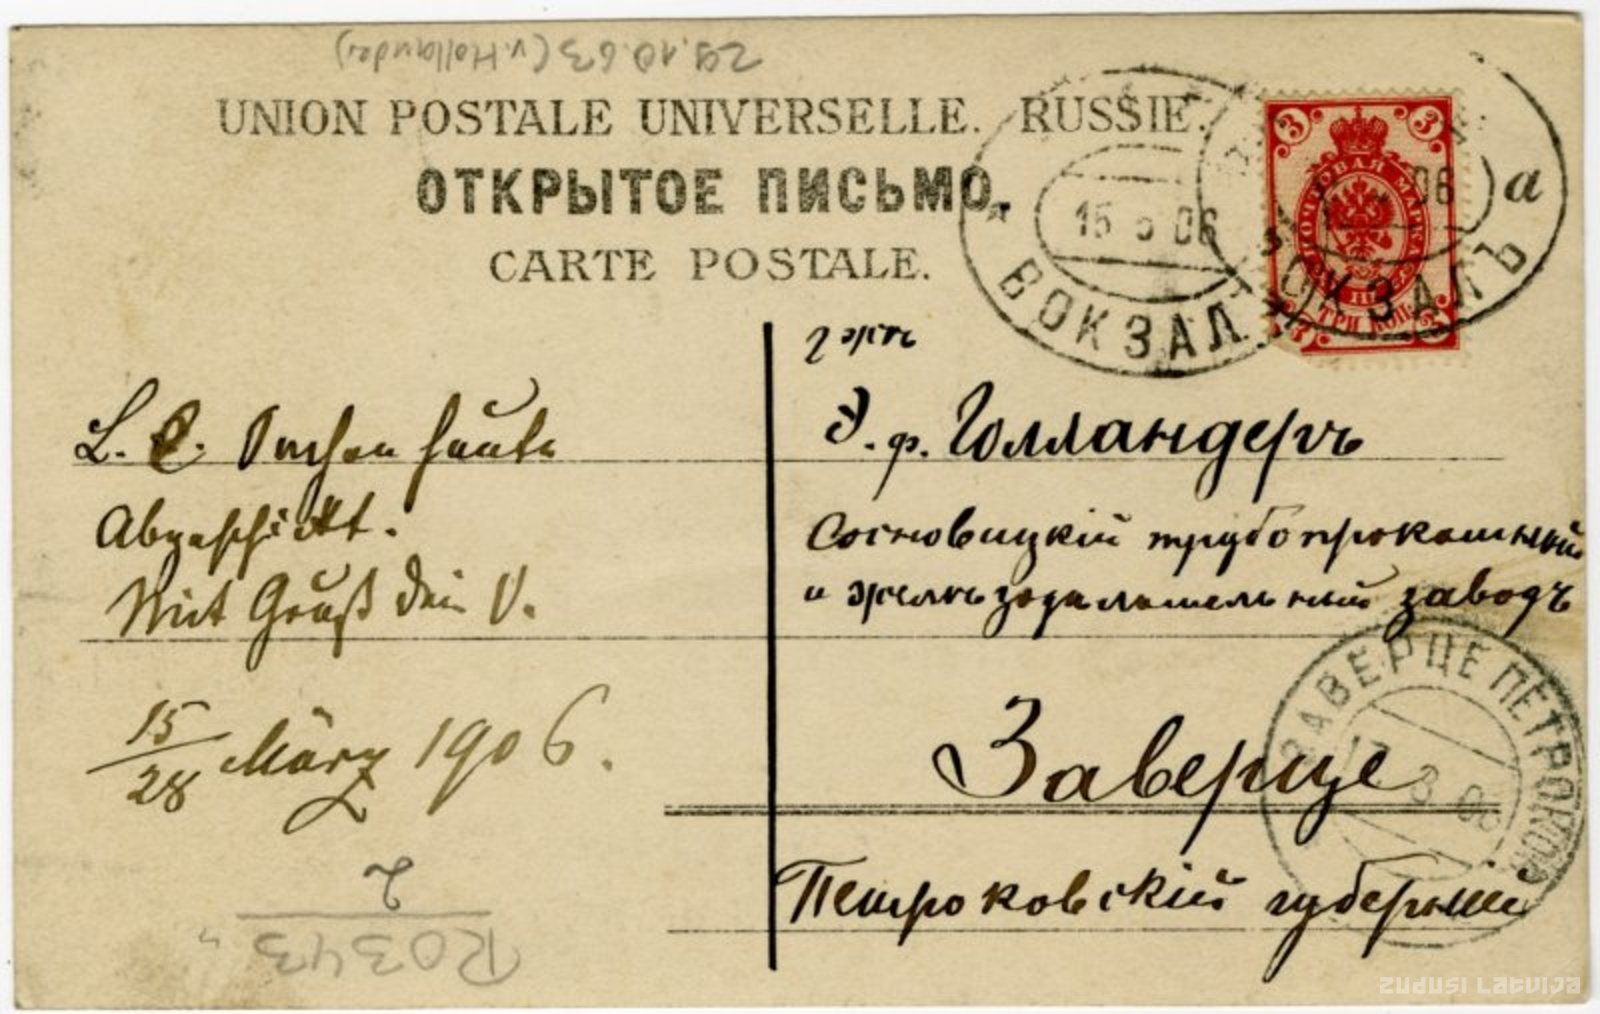 29.10.63 (v. Hollander)
UNION POSTALE UNIVERSELLE. RUSSIE.
ОТКРЫТОЕ ПИСЬМО.
CARTE POSTALE.
3 3
ПОЧТОВАЯ МАРКА
ТРИ КОП.
15 3 06
ВОКЗАЛ
06 а
ВОКЗАЛЪ
L. E.
Abgeschickt.
Mit Gruß Dein V.
15/28 März 1906.
Э. ф. Голландеръ
Сосновицкій трубопрокатный
и желѣзодѣлательный заводъ
Заверце
Петроковской губерніи
ЗАВЕРЦЕ ПЕТРОКОВ
17 3 06
2
R0343
ZUDUSI LATVIJA